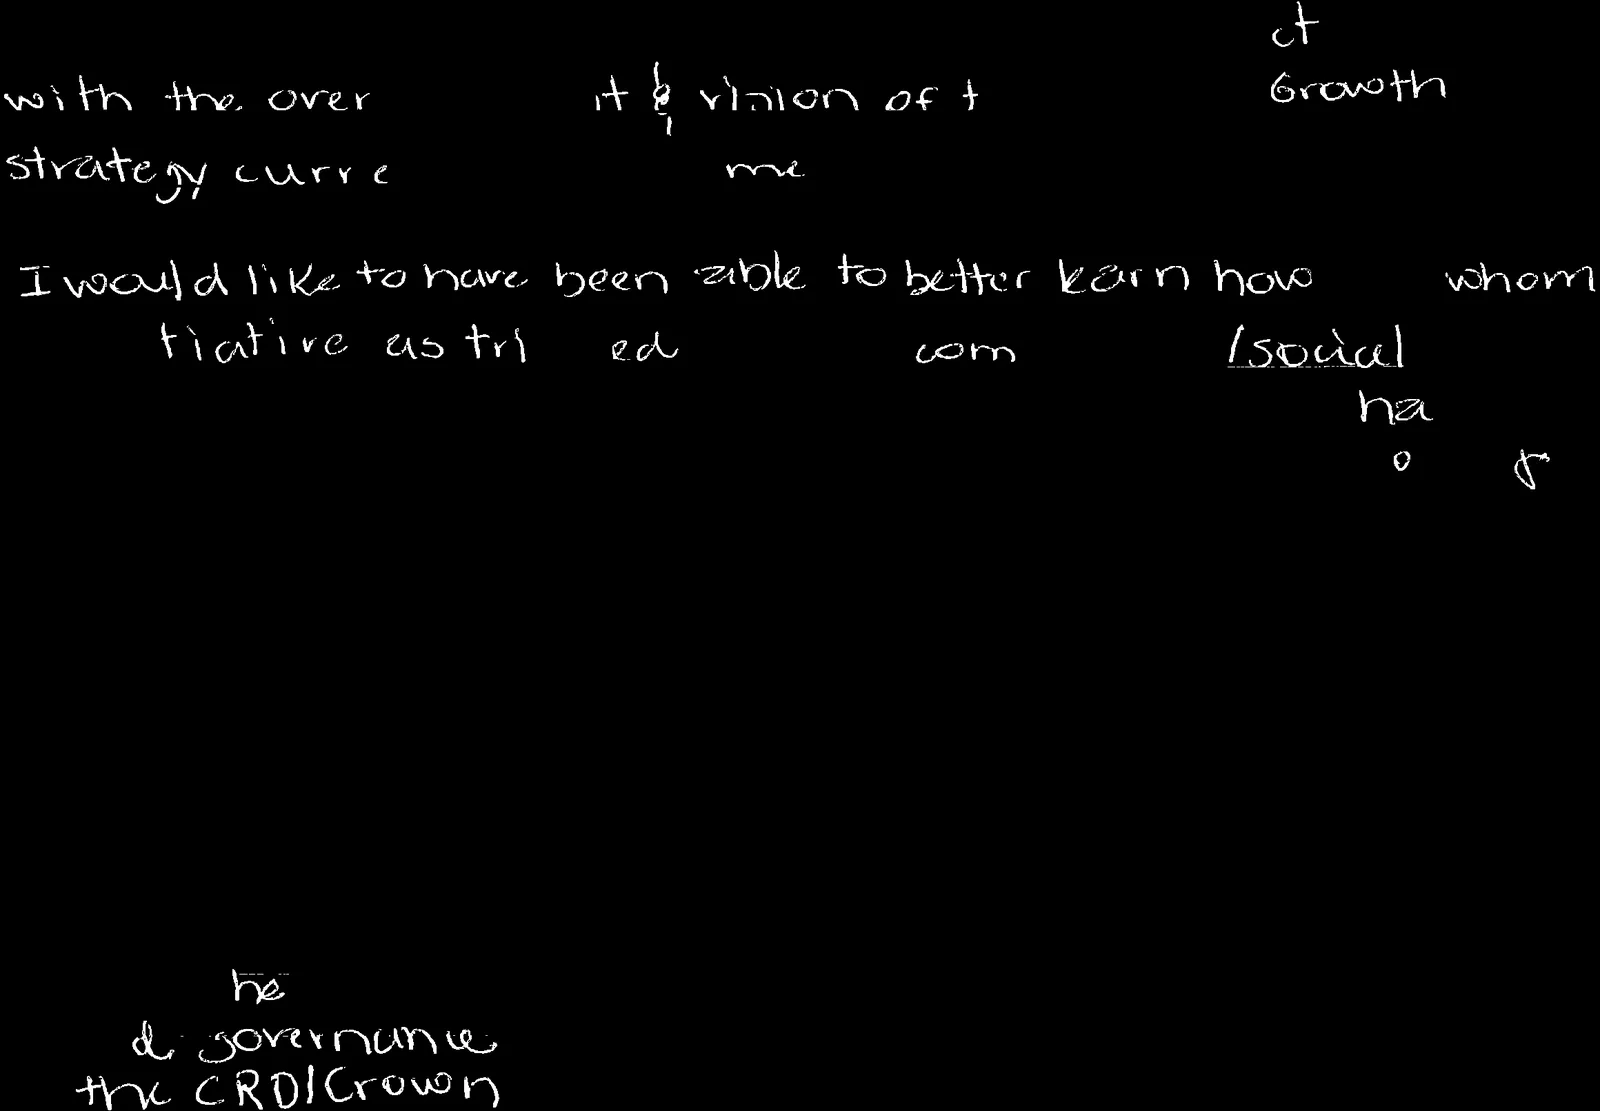 ct
with the over it & vision of t Growth
strategy curre me
I would like to have been able to better learn how whom
tiative as tri ed com /social
ha
o
he
d governance
the CRD/Crown